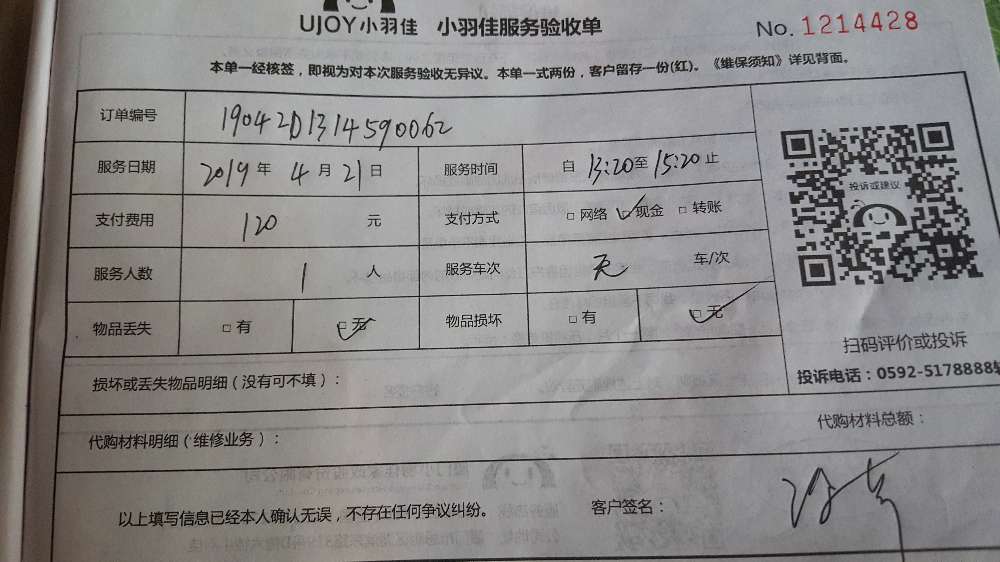 UJOY小羽佳 小羽佳服务验收单 No. 1214428
本单一经核签，即视为对本次服务验收无异议。本单一式两份，客户留存一份(红)。《维保须知》详见背面。
订单编号 19042D1314590062
服务日期 2019 年 4 月 21 日 服务时间 自 13:20 至 15:20 止
支付费用 120 元 支付方式 □ 网络 ☑ 现金 □ 转账
服务人数 1 人 服务车次 无 车/次
物品丢失 □ 有 ☑ 无 物品损坏 □ 有 ☑ 无
投诉或建议
扫码评价或投诉
投诉电话：0592-5178888转
损坏或丢失物品明细（没有可不填）：
代购材料明细（维修业务）： 代购材料总额：
以上填写信息已经本人确认无误，不存在任何争议纠纷。 客户签名：